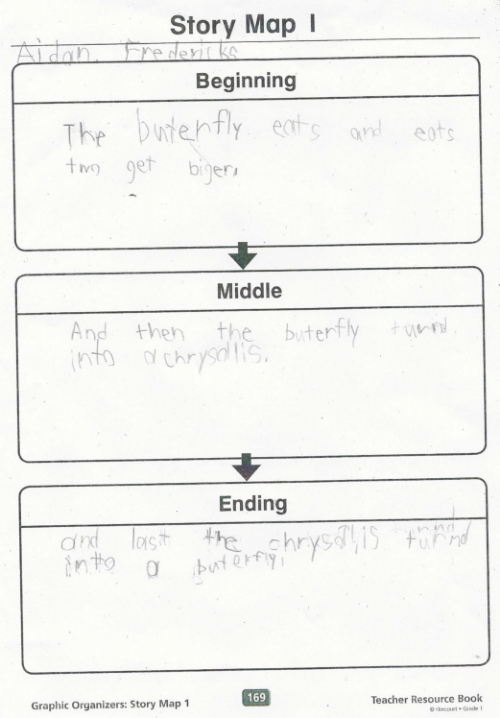 Story Map 1
Aidan Fredericks
Beginning
The buterfly eats and eats
two get biger.
Middle
And then the buterfly turnd
into a chrysalis.
Ending
turnd
and last the chrysalis turnd
into a buterfly.
Graphic Organizers: Story Map 1
169
Teacher Resource Book
© Harcourt • Grade 1